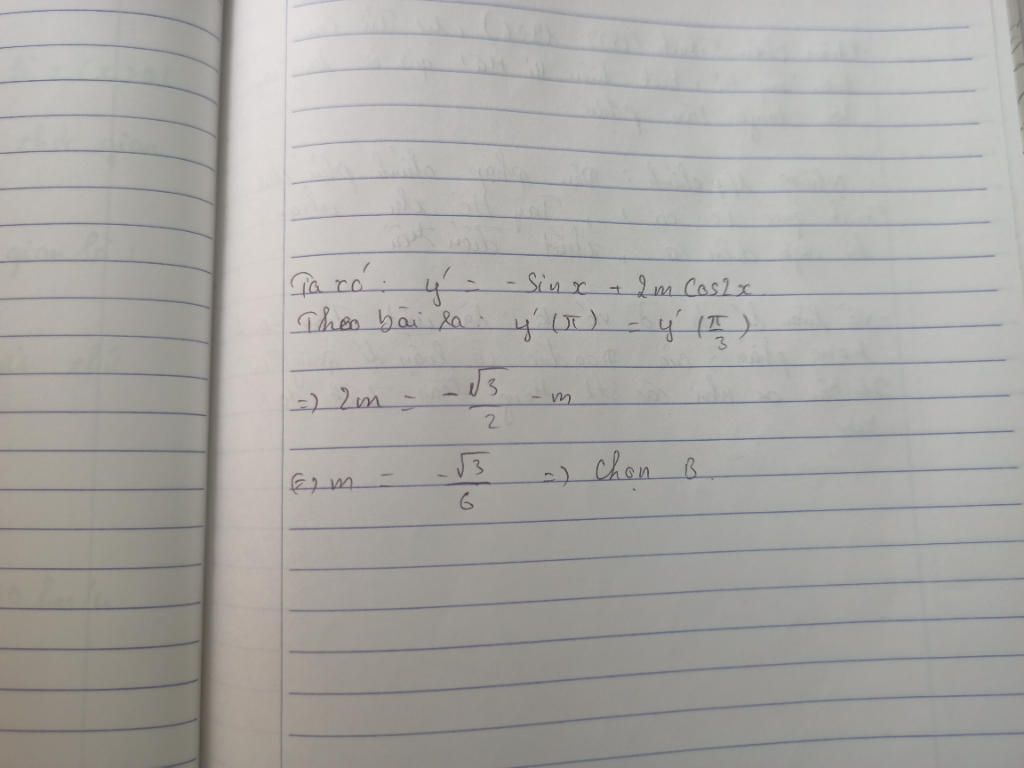 Ta có: y' = -sinx + 2m cos2x
Theo bài ra: y'(π) = y'(π/3)
=> 2m = -√3/2 - m
<=> m = -√3/6 => Chọn B.